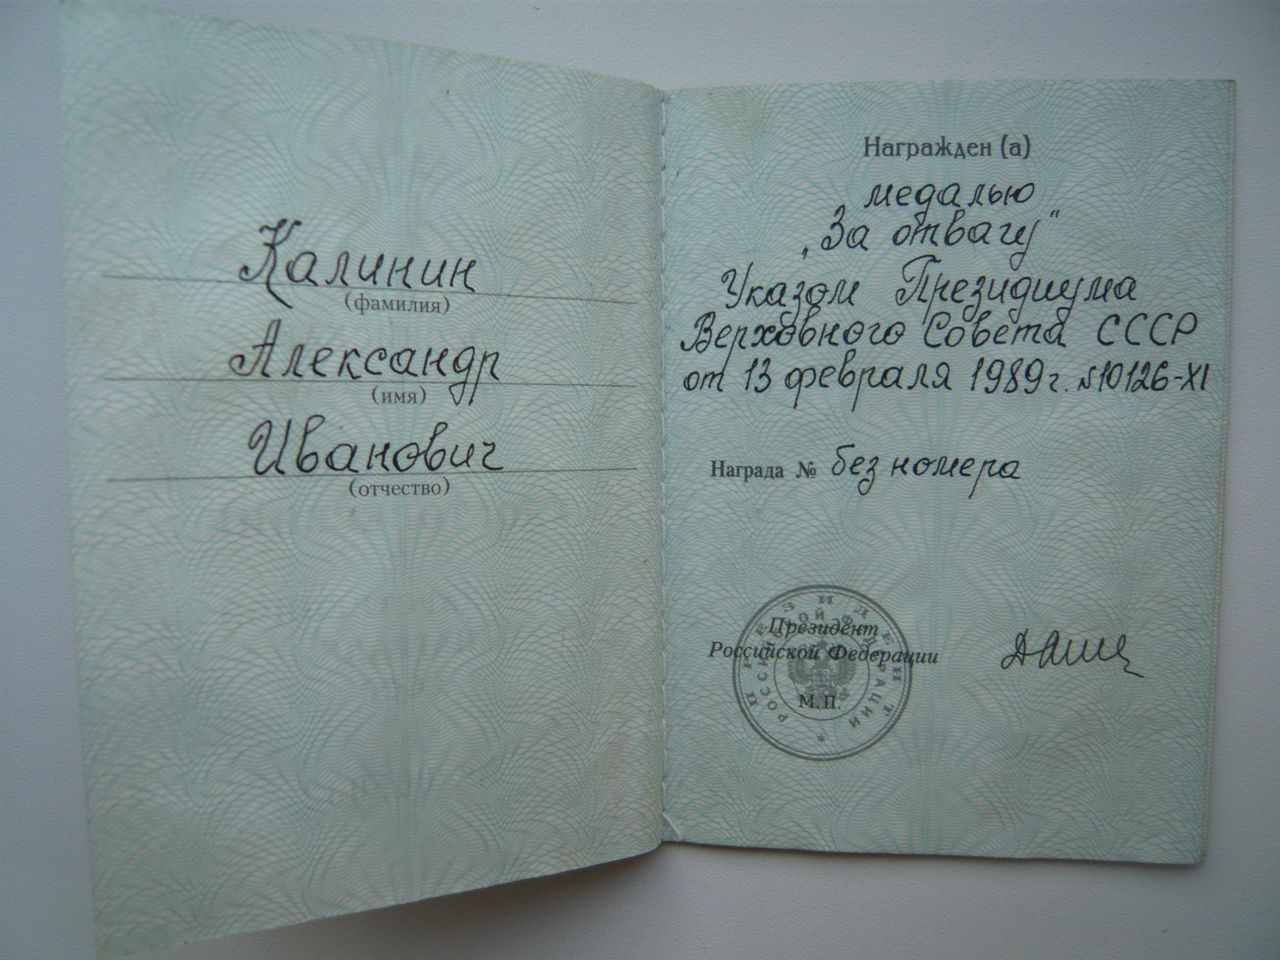 Калинин
(фамилия)
Александр
(имя)
Иванович
(отчество)
Награжден (а)
медалью
„За отвагу"
Указом Президиума
Верховного Совета СССР
от 13 февраля 1989 г. №10126-XI
Награда № без номера
ПРЕЗИДЕНТ
РОССИЙСКОЙ ФЕДЕРАЦИИ
Президент
Российской Федерации
М. П.